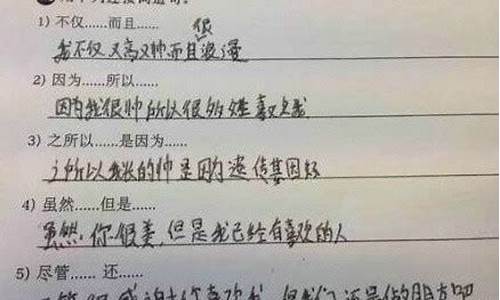 1) 不仅……而且……
很
我不仅又高又帅而且浪漫
2) 因为……所以……
因为我很帅所以很多姓喜欢我
3) 之所以……是因为……
之所以我长的帅是因为遗传基因好
4) 虽然……但是……
虽然你很美,但是我已经有喜欢的人
5) 尽管…… 还……
感谢你喜欢我,但我们还是做朋友吧